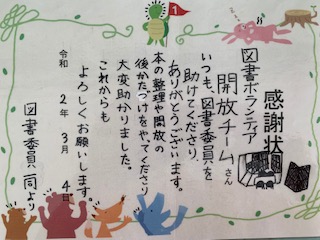 感謝状
図書ボランティア
開放チームさん
いつも、図書委員を
助けてくださり、
ありがとうございます。
本の整理や開放の
後かたづけをやってくださり
大変助かりました。
これからも
よろしくお願いします。
令和2年3月4日
図書委員一同より
1